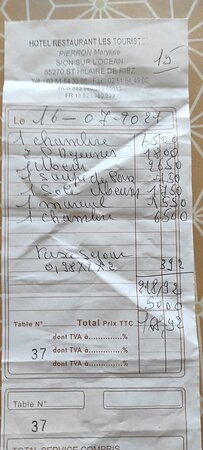 HOTEL RESTAURANT LES TOURISTES
PIERRON Marylène
SION SUR L'OCEAN
85270 ST HILAIRE DE RIEZ
15
Le 16-07-2021
1 chambre 6500
2 1800
1 2250
1 Soupe de 750
1 Sole 1750
1 mareuil 1550
1 chambre 6500
Taxe Sejour
0,98x2x2 392
218,92
5000
168,92
Table N° Total Prix TTC
dont TVA à..............%
37 dont TVA à..............%
dont TVA à..............%
Table N°
37
TOTAL SERVICE COMPRIS